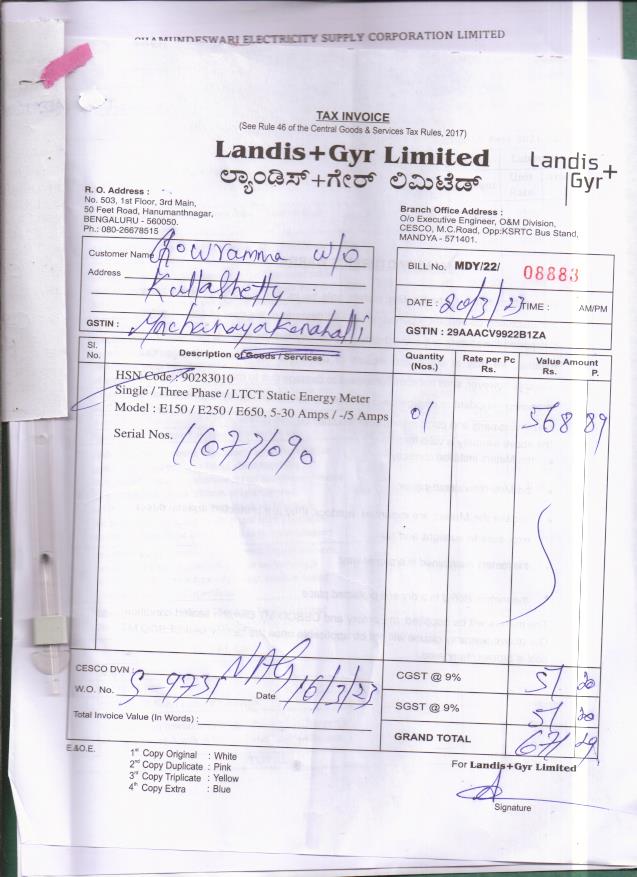 CHAMUNDESWARI ELECTRICITY SUPPLY CORPORATION LIMITED
TAX INVOICE
(See Rule 46 of the Central Goods & Services Tax Rules, 2017)
Landis+Gyr Limited
ಲ್ಯಾಂಡಿಸ್+ಗೇರ್ ಲಿಮಿಟೆಡ್
Landis+
Gyr
R. O. Address :
No. 503, 1st Floor, 3rd Main,
50 Feet Road, Hanumanthnagar,
BENGALURU - 560050.
Ph.: 080-26678515
Branch Office Address :
O/o Executive Engineer, O&M Division,
CESCO, M.C.Road, Opp:KSRTC Bus Stand,
MANDYA - 571401.
Customer Name Gowramma w/o
Address Kullashetty
GSTIN : Machanayakanahalli
BILL No. MDY/22/ 08883
DATE : 20/3/23 TIME : AM/PM
GSTIN : 29AAACV9922B1ZA
Sl. No. Description of Goods / Services Quantity (Nos.) Rate per Pc Rs. Value Amount Rs. P.
HSN Code : 90283010
Single / Three Phase / LTCT Static Energy Meter
Model : E150 / E250 / E650, 5-30 Amps / -/5 Amps 01 568 89
Serial Nos. 11073090
CESCO DVN : NAG
W.O. No. S-9731 Date 16/3/23
Total Invoice Value (In Words) :
CGST @ 9% 51 20
SGST @ 9% 51 20
GRAND TOTAL 671 29
E.&O.E.
1st Copy Original : White
2nd Copy Duplicate : Pink
3rd Copy Triplicate : Yellow
4th Copy Extra : Blue
For Landis+Gyr Limited
Signature